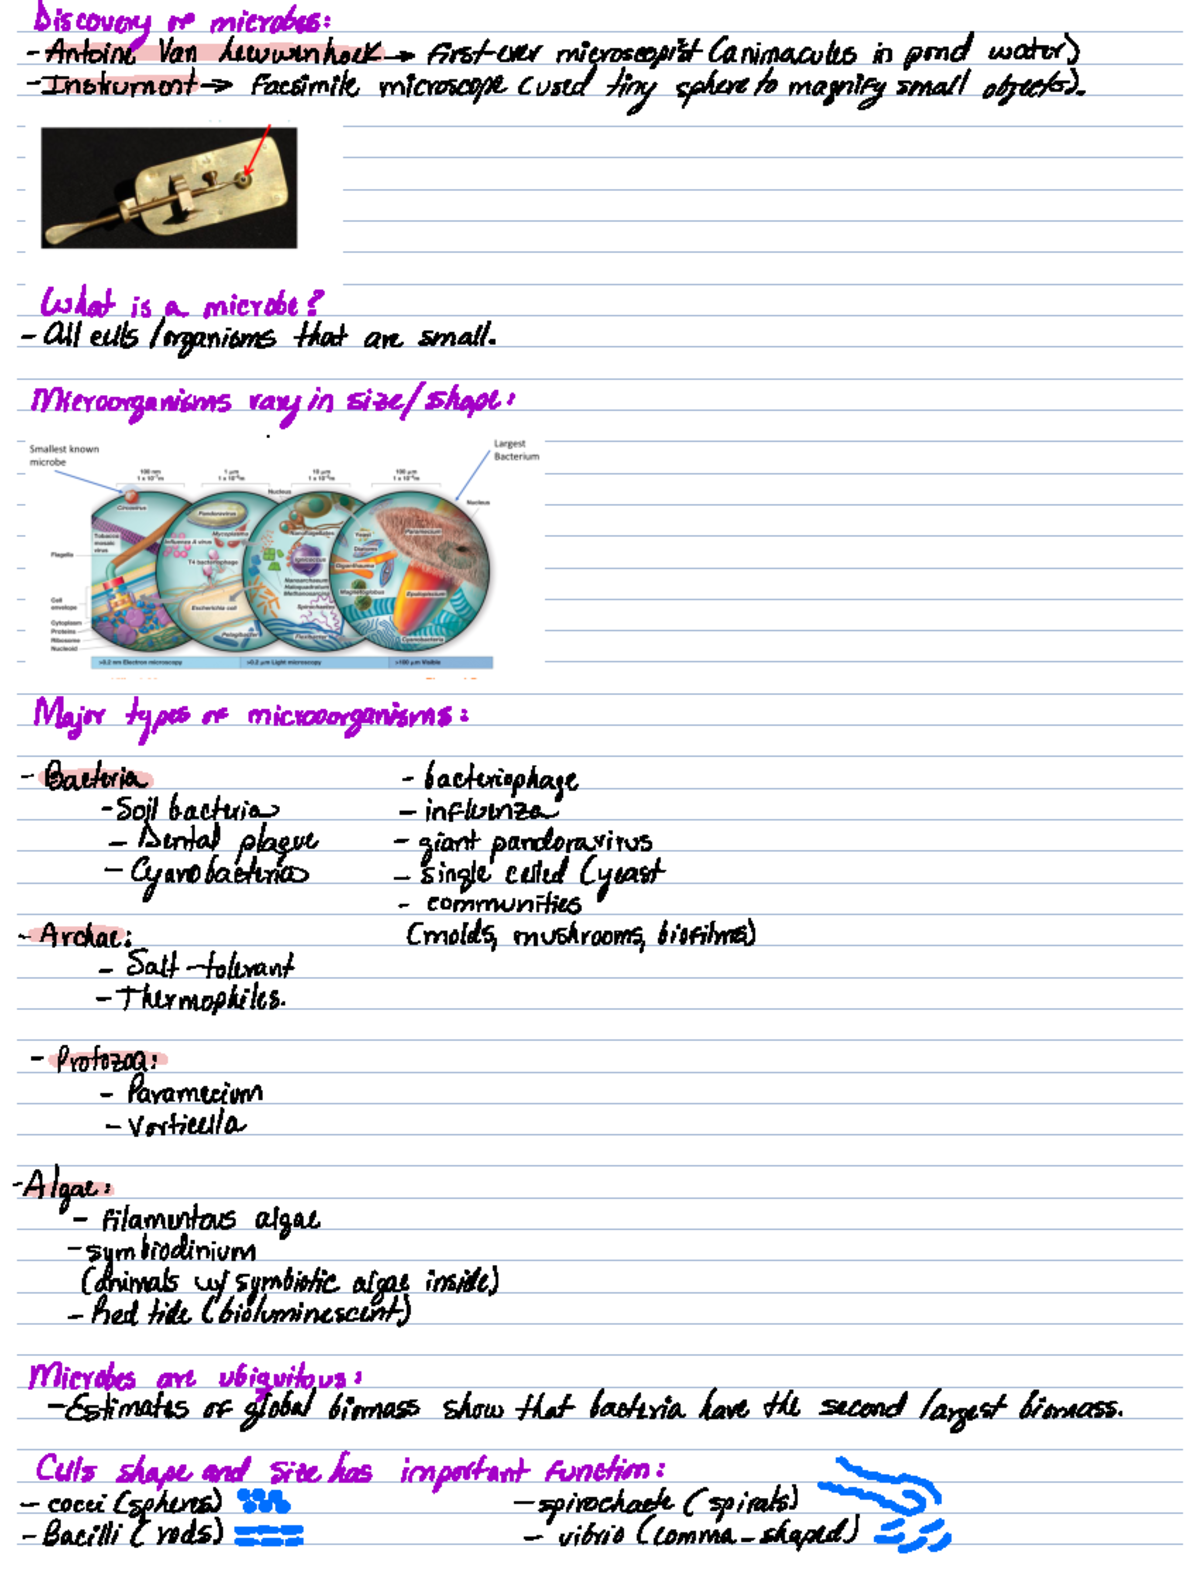 Discovery of microbes:
- Antoine Van Leeuwenhoek → First-ever microscopist (animacules in pond water)
- Instrument → Facsimile microscope (used tiny sphere to magnify small objects).
What is a microbe?
- All cells/organisms that are small.
Microorganisms vary in size/shape:
Smallest known
microbe
Largest
Bacterium
100 nm
1 µm
10 µm
100 µm
Nucleus
Nucleus
Circovirus
Pandoravirus
Paramecium
Tobacco
mosaic
virus
Mycoplasma
Influenza A virus
Yeast
Diatoms
Flagella
T4 bacteriophage
Cell
envelope
Escherichia coli
Spirochaetes
Epulopiscium
Cytoplasm
Proteins
Ribosome
Nucleoid
Pelagibacter
Cyanobacteria
>0.2 nm Electron microscopy
>0.2 µm Light microscopy
>100 µm Visible
Major types of microoorganisms:
- Bacteria
- Soil bacteria
- Dental plaque
- Cyanobacteria
- bacteriophage
- influenza
- giant pandoravirus
- single celled (yeast
- communities
(molds, mushrooms, biofilms)
- Archae:
- Salt-tolerant
- Thermophiles.
- Protozoa:
- Paramecium
- Vorticella
- Algae:
- filamentous algae
- symbiodinium
(animals w/ symbiotic algae inside)
- Red tide (bioluminescent)
Microbes are ubiquitous:
- Estimates of global biomass show that bacteria have the second largest biomass.
Cells shape and size has important function:
- cocci (spheres)
- Bacilli (rods)
- spirochaete (spirals)
- vibrio (comma-shaped)